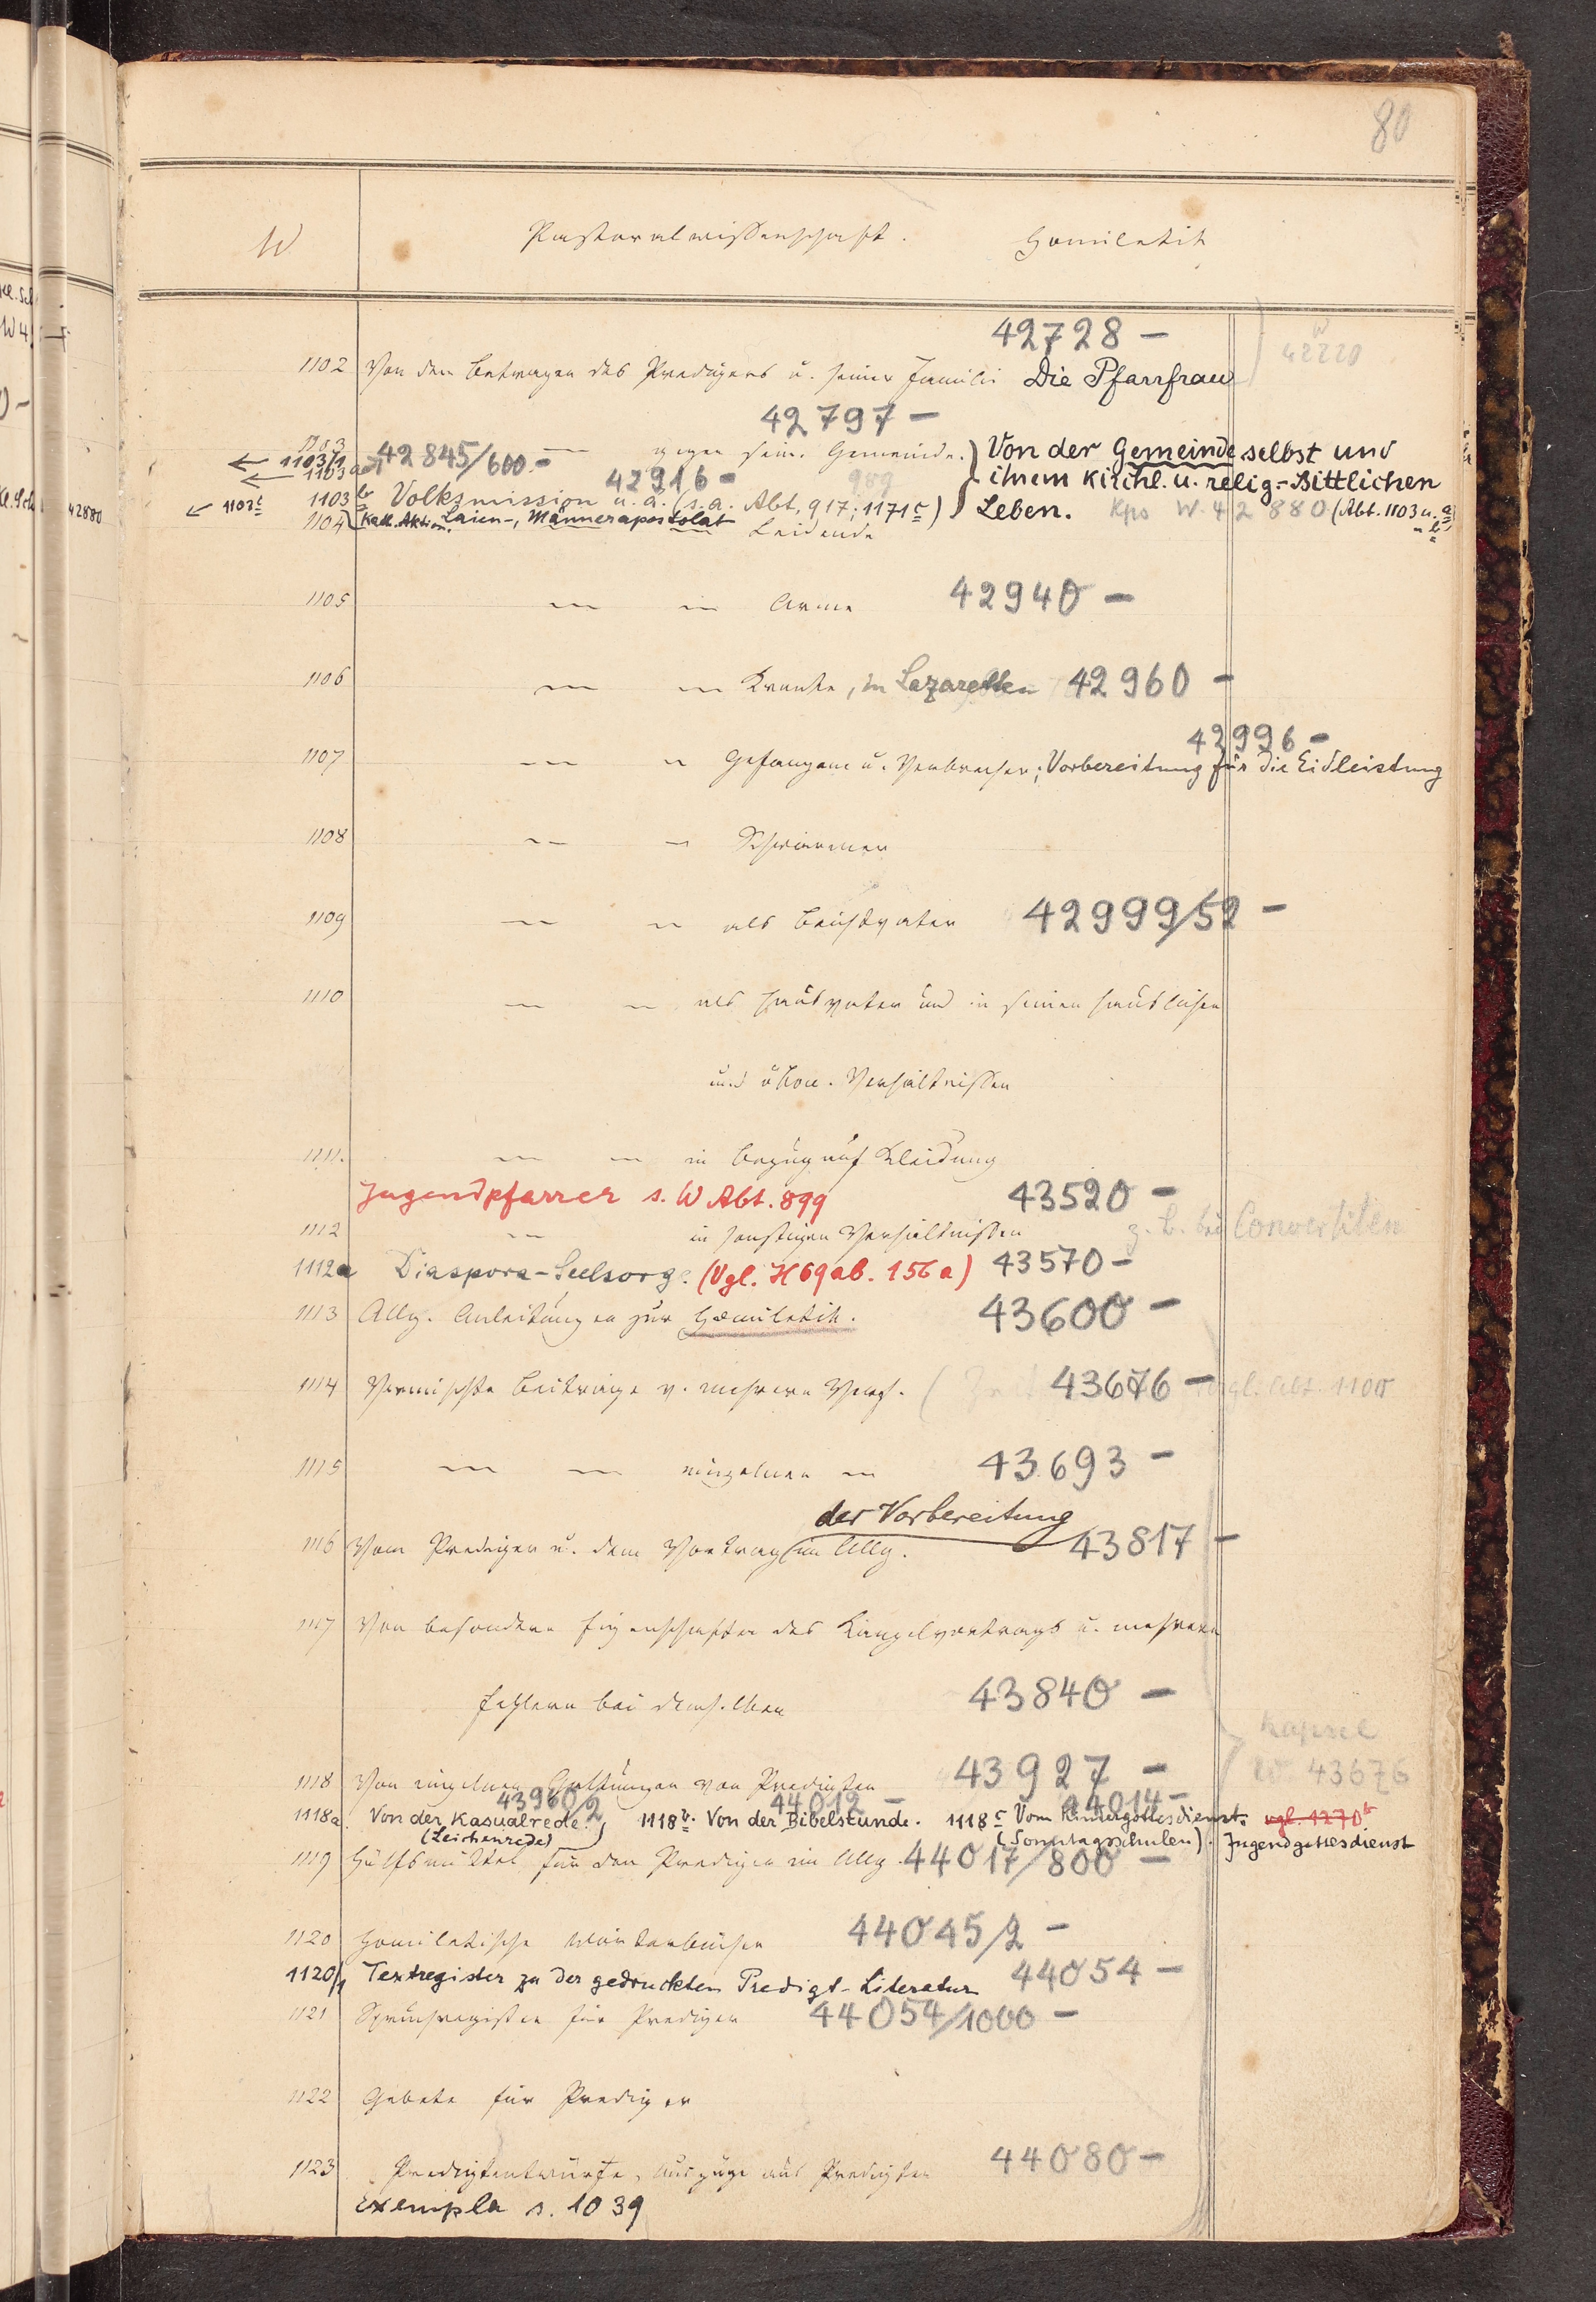 80
W Pastoralwissenschaft. Homiletik
42728 –
W 42220
1102 Von dem Betragen des Predigers u. seiner Familie Die Pfarrfrau
42797 –
1103 — gegen seine Gemeinde.) Von der Gemeinde selbst und
← 1103/1 42845/600 –
← 1103a 42916 – ihrem kirchl. u. relig.-sittlichen
1103b Volksmission u. ä. (s. a. Abt. 917; 1171c) Leben. Kps W. 42880 (Abt. 1103 u. a
↙ 1103c Kath. Aktion. Laien-, Männerapostolat " b
1104 Leidende
1105 — — Arme 42940 –
1106 — — Kranke, in Lazaretten 42960 –
42996 –
1107 — — Gefangene u. Verbrecher; Vorbereitung für die Eidleistung
1108 — — Schwärmer
1109 — — als Beichtvater 42999/52 –
1110 — — als Hausvater und in seinen häuslichen
und ökon. Verhältnissen
1111. — — in Bezug auf Kleidung
Jugendpfarrer s. W Abt. 899 43520 –
1112 — in sonstigen Verhältnissen z. B. bei Convertiten
1112a Diaspora-Seelsorge. (Vgl. H 69ab. 156a) 43570 –
1113 Allg. Anleitungen zur Homiletik. 43600 –
1114 Vermischte Beiträge v. mehrern Verf. 43676 – vgl. Abt. 1100
1115 — — einzelnen — 43693 –
der Vorbereitung
1116 Vom Prediger u. dem Vortrag im Allg. 43817 –
1117 Von besondern Eigenschaften des Kanzelvortrags u. mehrern
Fehlern bei demselben 43840 –
Kapsel
W 43676
1118 Von einzelnen Gattungen von Predigten 43927 –
43960/2 44012 – 44014 –
1118a. Von der Kasualrede. 1118b. Von der Bibelstunde. 1118c Vom Kindergottesdienst. vgl. 1270b
(Leichenrede) (Sonntagsschulen). Jugendgottesdienst
1119 Hülfsmittel für den Prediger im Allg. 44017/800 –
1120 Homiletische Wörterbücher 44045/2 –
1120/1 Textregister zu der gedruckten Predigt-Literatur 44054 –
1121 Spruchregister für Prediger 44054/1000 –
1122 Gebete für Prediger
1123 Predigtentwürfe, Auszüge aus Predigten 44080 –
Exempla s. 1039
42880